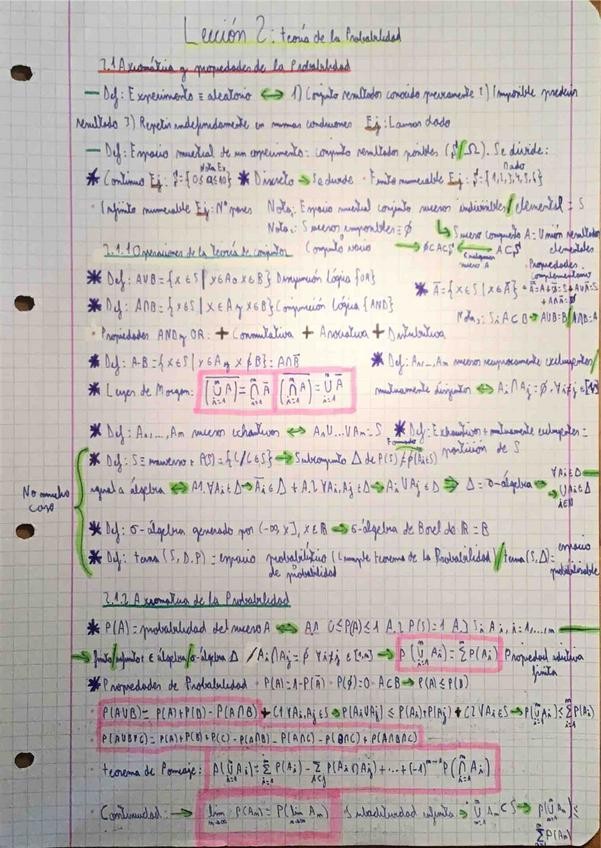 Lección 2: teoría de la Probabilidad
2.1 Axiomática y propiedades de la Probabilidad
— Def: Experimento ≡ aleatorio ⟺ 1) Conjunto resultados conocido previamente 2) Imposible predecir
resultado 3) Repetir indefinidamente en mismas condiciones Ej: Lanzar dado
— Def: Espacio muestral de un experimento = conjunto resultados posibles (S/Ω). Se divide:
* Continuo Ej: * Discreto → Se divide · Finito numerable Ej: S={1,2,3,4,5,6}
Nota Ex Dado
· Infinito numerable Ej: Nº pares Nota: Espacio muestral conjunto sucesos indivisibles/elemental = S
Nota: Sucesos imposibles = ∅ Suceso compuesto A = Unión resultados
elementales
2.1.1 Operaciones de la teoría de conjuntos Conjunto vacío → ∅⊂A⊂S A⊂S
Cualquier suceso A
· Propiedades Complementario
* Def: A∪B={x∈S | x∈A o x∈B} Disyunción lógica (OR)
* Ā={x∈S | x∉A}
* Def: A∩B={x∈S | x∈A y x∈B} Conjunción Lógica (AND)
Nota: Si A⊂B → A∪B=B/A∩B=A
· Propiedades AND y OR: + Conmutativa + Asociativa + Distributiva
* Def: A-B={x∈S | x∈A y x∉B}=A∩B̄ * Def: A₁,...,Aₙ sucesos recíprocamente excluyentes/
* Leyes de Morgan: mutuamente disjuntos ⟺ Aᵢ∩Aⱼ=∅, ∀i≠j
* Def: A₁,...,Aₙ sucesos exhaustivos ⟺ A₁∪...∪Aₙ=S * Def: Exhaustivos + mutuamente excluyentes =
partición de S
No mucho
caso
* Def: → Subconjunto Δ de P(S)
igual a álgebra ⟺ ⟺ Δ=σ-álgebra
* Def: σ-álgebra generado por (-∞,x], x∈ℝ → σ-álgebra de Borel de ℝ = B
* Def: terna (S,Δ,P) = espacio probabilístico (cumple teorema de la Probabilidad)/tema (S,Δ) = espacio
de probabilidad probabilizable
2.1.2 Axiomática de la Probabilidad
* P(A) = probabilidad del suceso A ⟺ A1 0≤P(A)≤1 A2 P(S)=1 A3 Si Aᵢ, i=1,...,n
→ finito/infinito ∈ álgebra/σ-álgebra Δ / Aᵢ∩Aⱼ=∅ ∀i≠j → P(⋃Aᵢ)=ΣP(Aᵢ) Propiedad aditiva
finita
* Propiedades de Probabilidad · P(A)=1-P(Ā) · P(∅)=0 · A⊂B → P(A)≤P(B)
· P(A∪B)=P(A)+P(B)-P(A∩B) + (1 ∀Aᵢ,Aⱼ∈S → P(Aᵢ∪Aⱼ)≤P(Aᵢ)+P(Aⱼ) + (2 ∀Aᵢ∈S → P(⋃Aᵢ)≤ΣP(Aᵢ)
P(A∪B∪C)=P(A)+P(B)+P(C)-P(A∩B)-P(A∩C)-P(B∩C)+P(A∩B∩C)
· teorema de Poincaje: P(⋃Aᵢ)=ΣP(Aᵢ)-ΣP(Aᵢ∩Aⱼ)+...+(-1)ⁿ⁻¹P(⋂Aᵢ)
· Continuidad: → lim P(Aₙ)=P(lim Aₙ) Subaditividad infinita → ⋃Aₙ⊂S → P(⋃Aₙ)≤
ΣP(Aₙ)